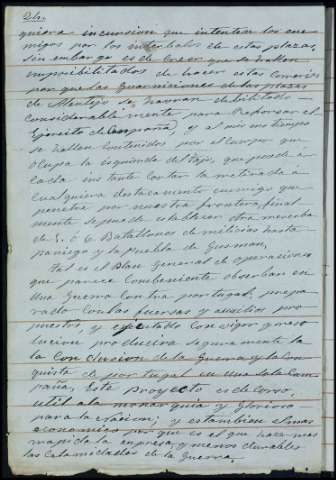 24.
quiera incursion que intenten los ene-
migos por los intervalos de estas plazas,
sin embargo es de creer que se hallen
imposibilitados de hacer estas
porque las Guarniciones de las plazas
de Alentejo se habran debilitado
considerablemente para reforsar el
Ejercito de campaña, y al mismo tiempo
se hallen contenidos por el cuerpo que
ocupa la isquierda del Tajo, que puede à
cada instante cortar la retirada à
cualquiera destacamento enemigo que
penetre por nuestra frontera, final
mente se puede establecer otra
de 5. ó 6 Batallones de milicias hasta
paimogo y la Puebla de Gusman.
Tal es el Plan General de operaciones
que parece combeniente obserbar en
una Guerra contra portugal, prepa
rado con las fuersas y ausilios pro
puestos, y ejecutado con vigor y reso
lucion producira seguramente la
la conclucion de la Guerra y la con
quista de portugal en una sola Cam
paña, Este proyecto es de coroso,
util ala monarquia y Glorioso
para la nacion, y es tambien el mas
economico por que es el que hace mas
rapida la empresa y menos durables
las Calamidades de la Guerra.